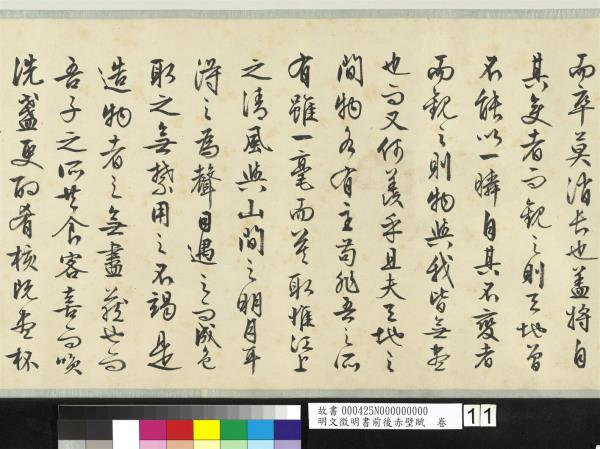 而卒莫消長也蓋將自
其變者而觀之則天地曾
不能以一瞬自其不變者
而觀之則物與我皆無盡
也而又何羨乎且夫天地之
間物各有主苟非吾之所
有雖一毫而莫取惟江上
之清風與山間之明月耳
得之為聲目遇之而成色
取之無禁用之不竭是
造物者之無盡藏也而
吾子之所共食客喜而笑
洗盞更酌肴核既盡杯
故書 000425N000000000
明文徵明書前後赤壁賦 卷
11